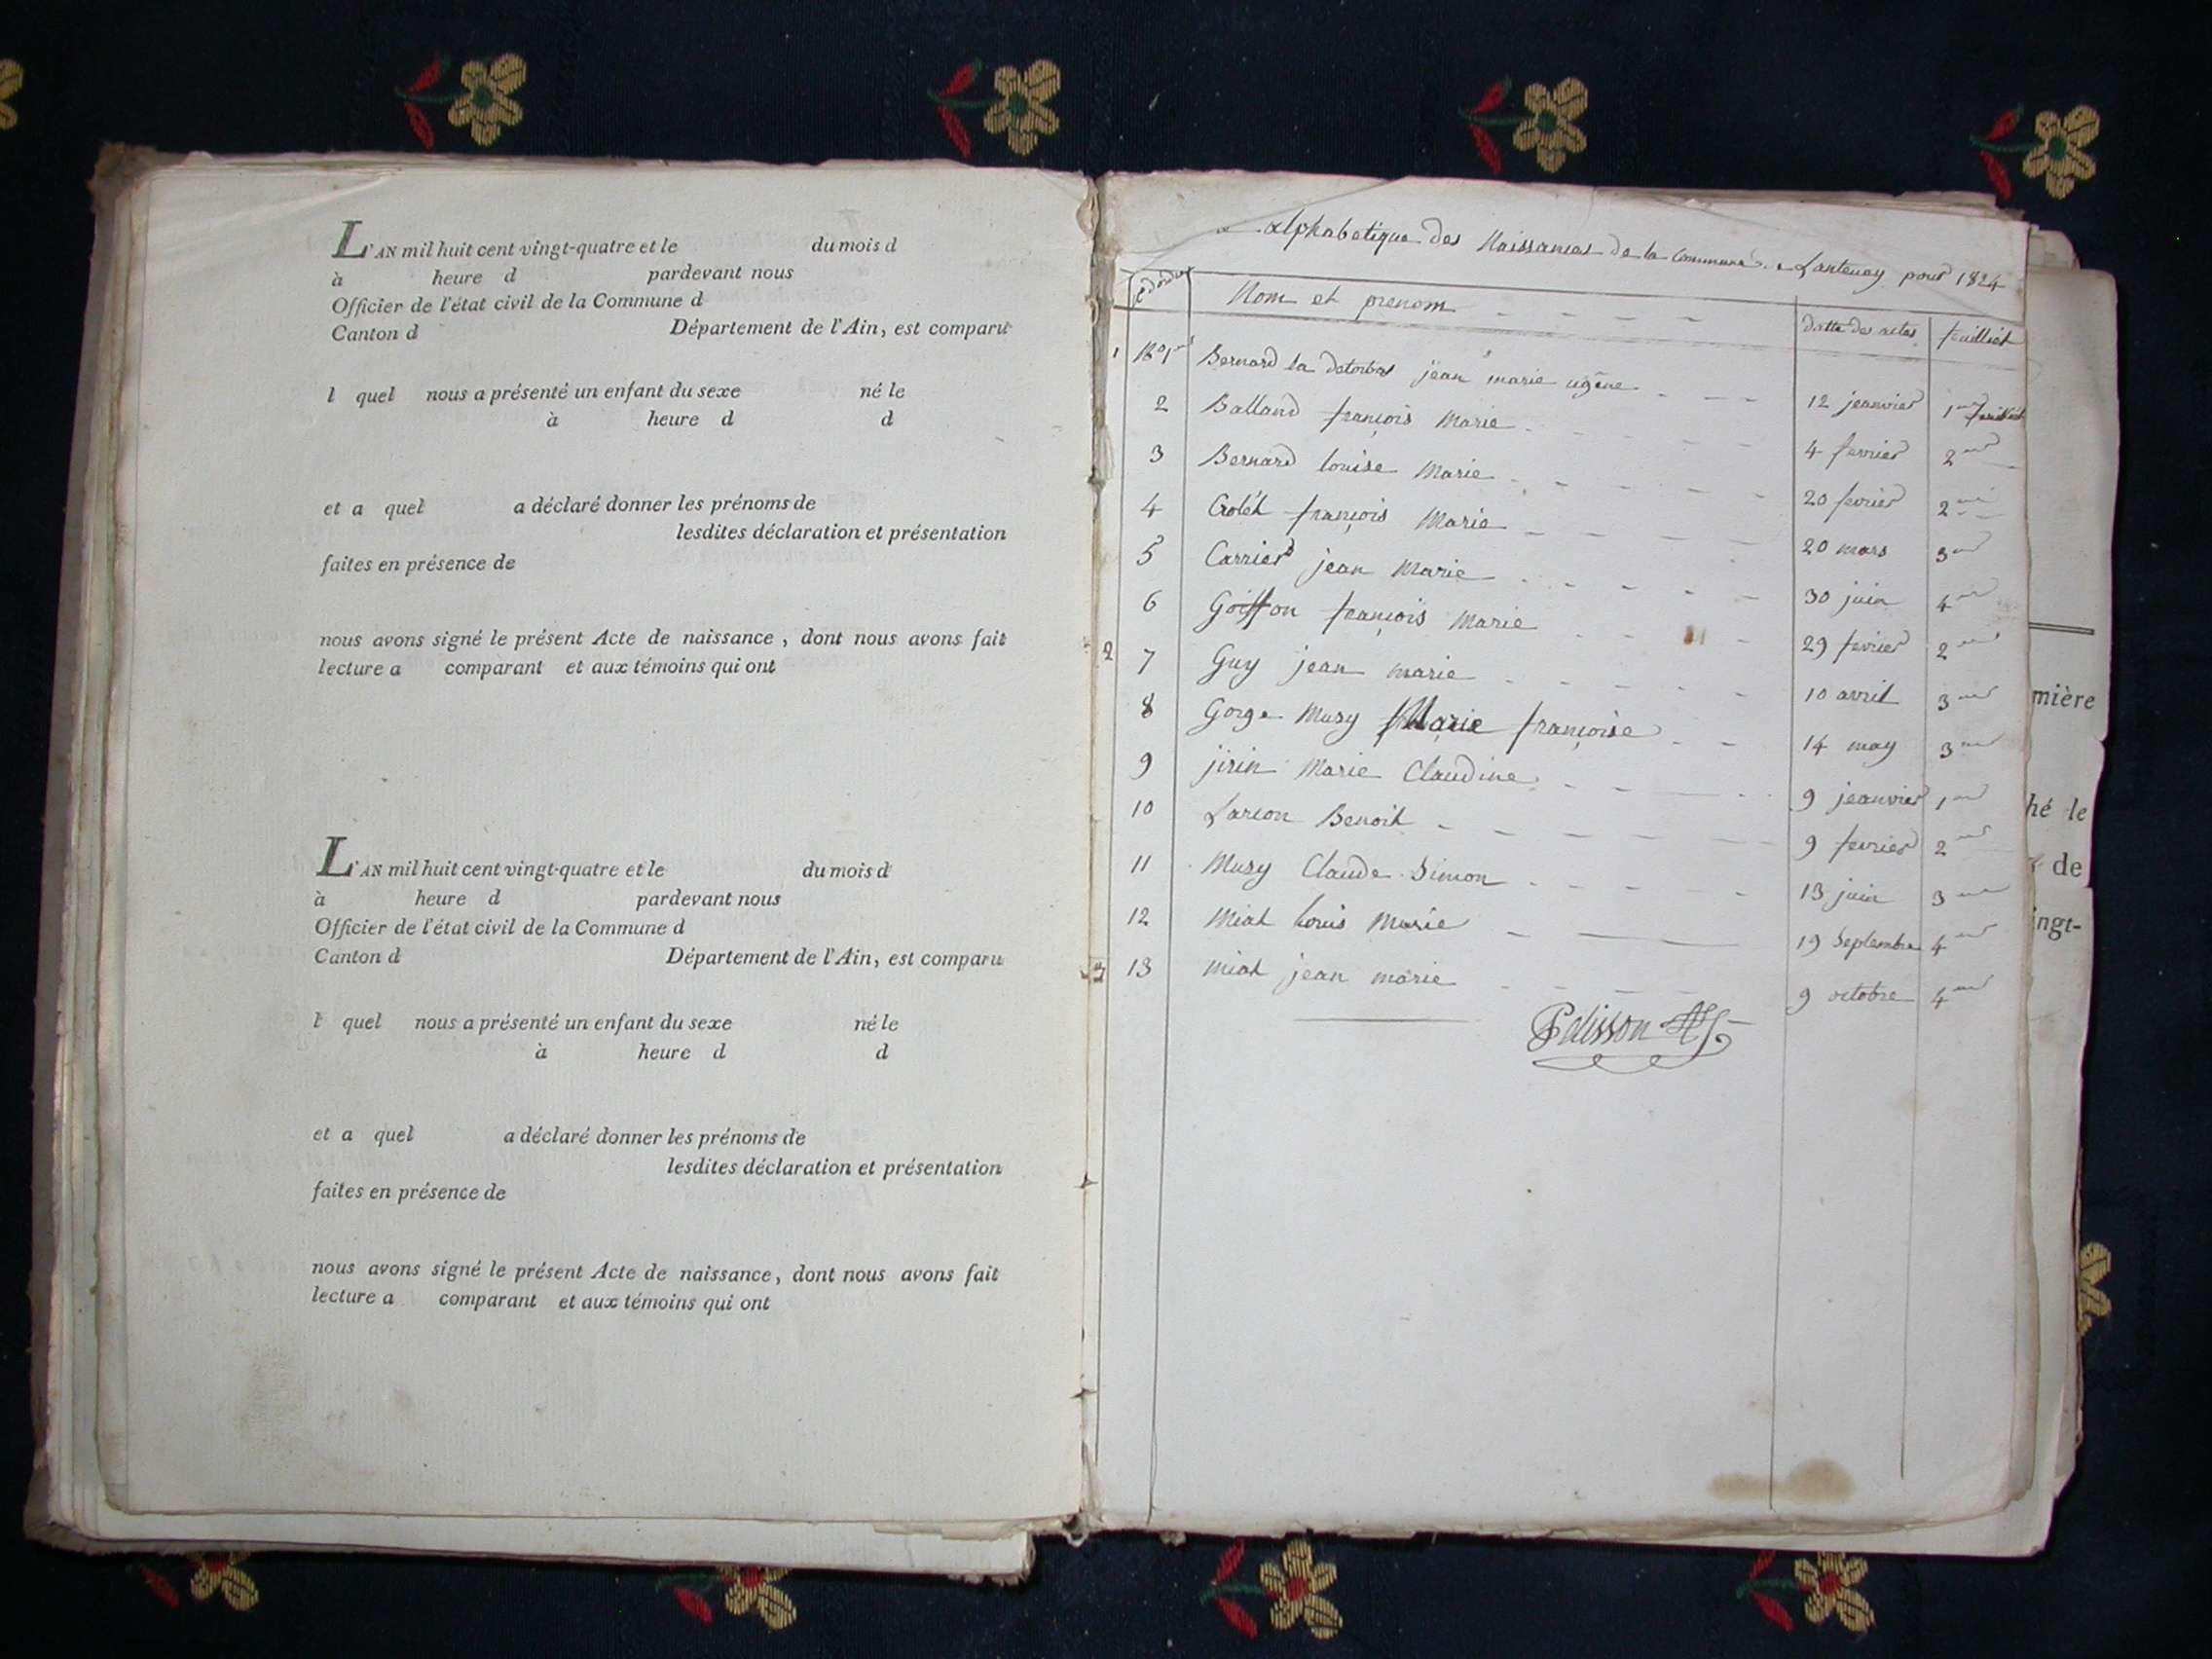 L'AN mil huit cent vingt-quatre et le du mois d
à heure d pardevant nous
Officier de l'état civil de la Commune d
Canton d Département de l'Ain, est comparu
l quel nous a présenté un enfant du sexe né le
à heure d d
et a quel a déclaré donner les prénoms de
lesdites déclaration et présentation
faites en présence de
nous avons signé le présent Acte de naissance, dont nous avons fait
lecture a comparant et aux témoins qui ont
L'AN mil huit cent vingt-quatre et le du mois d
à heure d pardevant nous
Officier de l'état civil de la Commune d
Canton d Département de l'Ain, est comparu
l quel nous a présenté un enfant du sexe né le
à heure d d
et a quel a déclaré donner les prénoms de
lesdites déclaration et présentation
faites en présence de
nous avons signé le présent Acte de naissance, dont nous avons fait
lecture a comparant et aux témoins qui ont
alphabetique des Naissances de la Commune Lantenay pour 1824
Nom et prenom datte des actes feuilliet
1 Bernard la jean marie ugêne 12 jeanvier 1er feuilliet
2 Balland françois Marie 4 fevrier 2me
3 Bernard louise Marie 20 fevrier 2me
4 Crolét françois Marie 20 mars 3me
5 Carrier jean Marie 30 juin 4me
6 Goiffon françois Marie 29 fevrier 2me
2 7 Guy jean marie 10 avril 3me
8 Gorge Musy Marie françoise 14 may 3me
9 jirin Marie Claudine 9 jeanvier 1er
10 Larcon Benoit 9 fevrier 2me
11 Musy Claude Simon 13 juin 3me
12 Miat Louis Marie 19 Septembre 4me
3 13 miat jean marie 9 octobre 4me
Pelisson
mière
hé le
de
ingt-